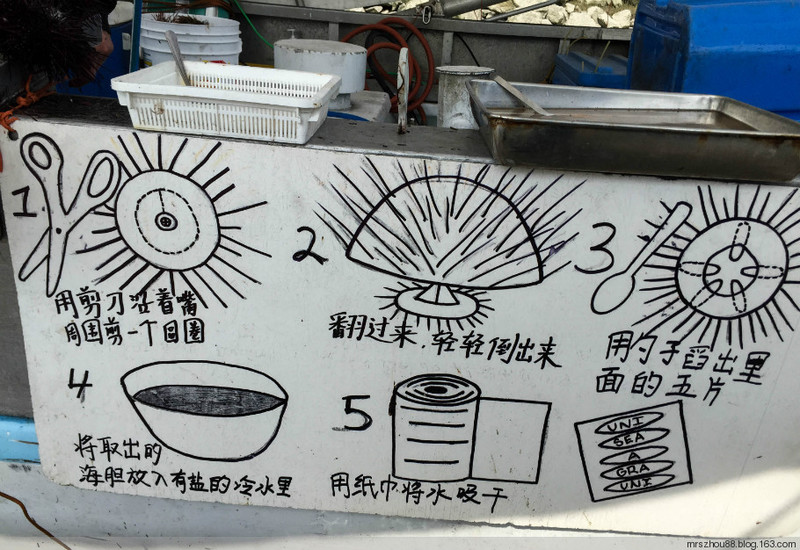 1
用剪刀沿着嘴
周围剪一个圆圈
2
翻过来，轻轻倒出来
3
用勺子舀出里
面的五片
4
将取出的
海胆放入有盐的冷水里
5
用纸巾将水吸干
UNI
SEA
A
GRA
UNI
mrszhou88.blog.163.com